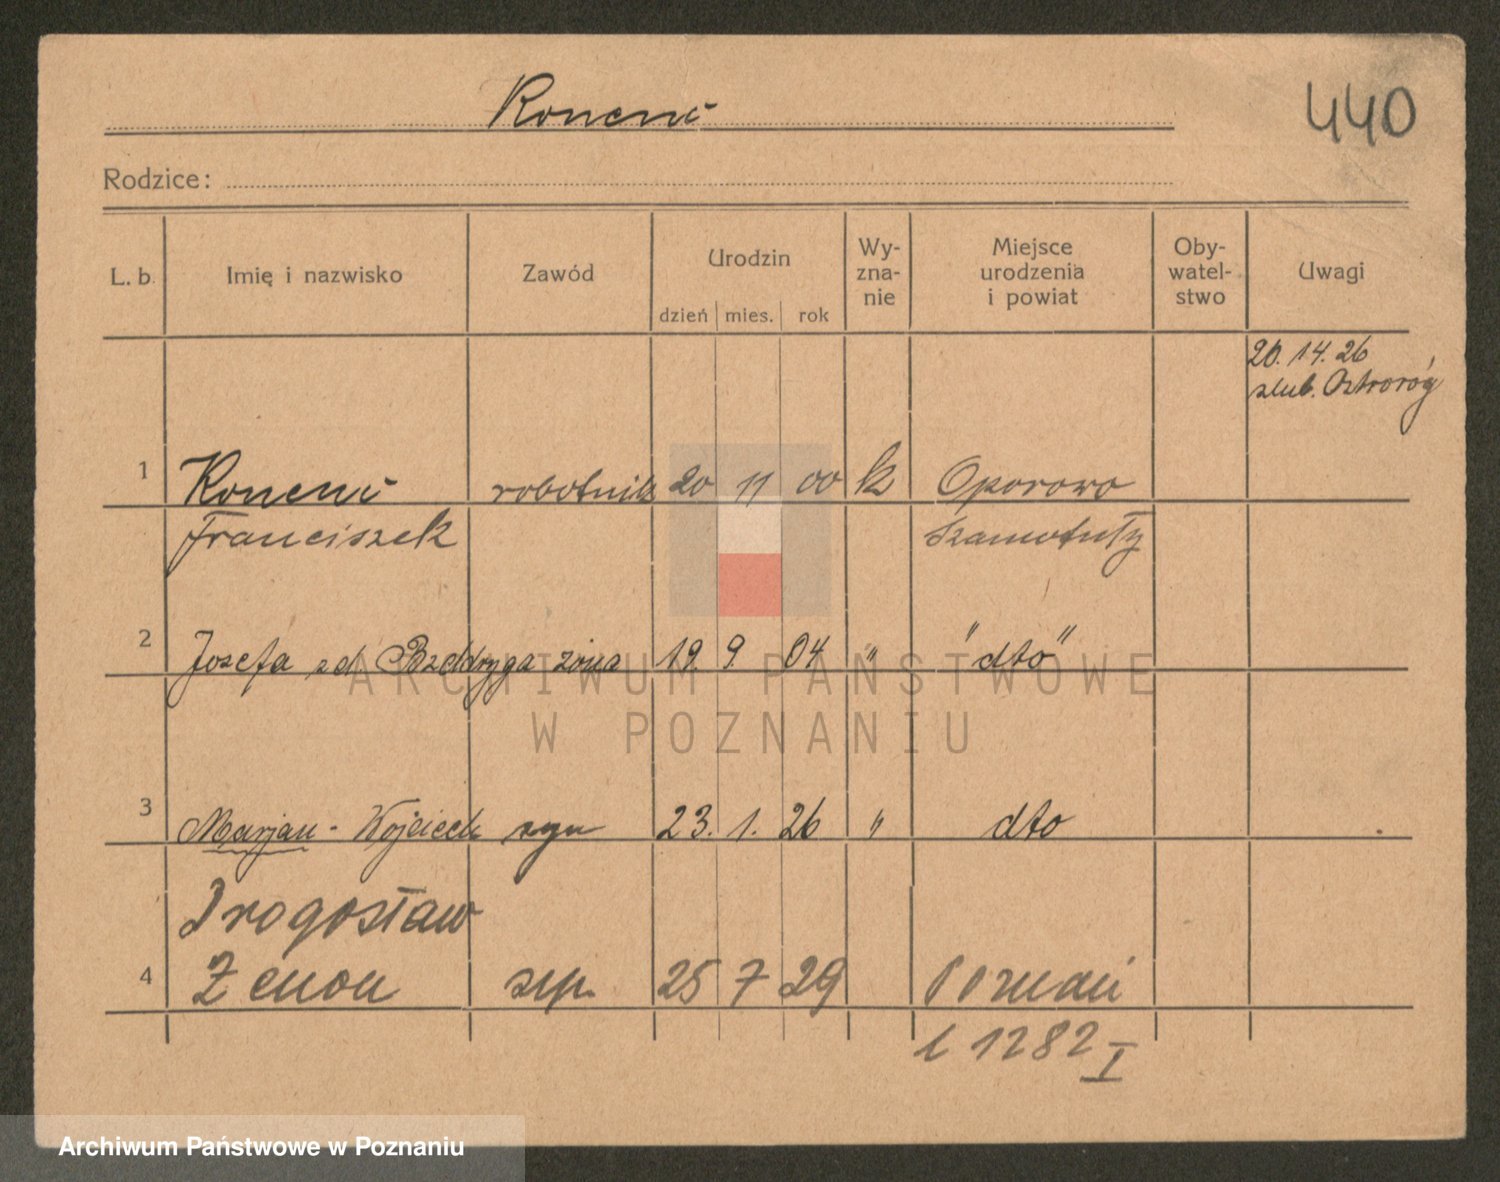 Koncmi
440
Rodzice:
L. b. Imię i nazwisko Zawód Urodzin Wy-zna-nie Miejsce urodzenia i powiat Oby-watel-stwo Uwagi
dzień mies. rok
20. 14. 26
slub. Ostroróg
1 robotnik 20 11 00 k Oporowo
Franciszek Szamotuły
2 Józefa żona 19. 9. 04 " "dto"
ARCHIWUM PAŃSTWOWE
W POZNANIU
3 Marjan - Wojciech syn 23. 1. 26 " dto
Drogosław
4 Zenon syn. 25 7 29 Poznań
1282 I
Archiwum Państwowe w Poznaniu